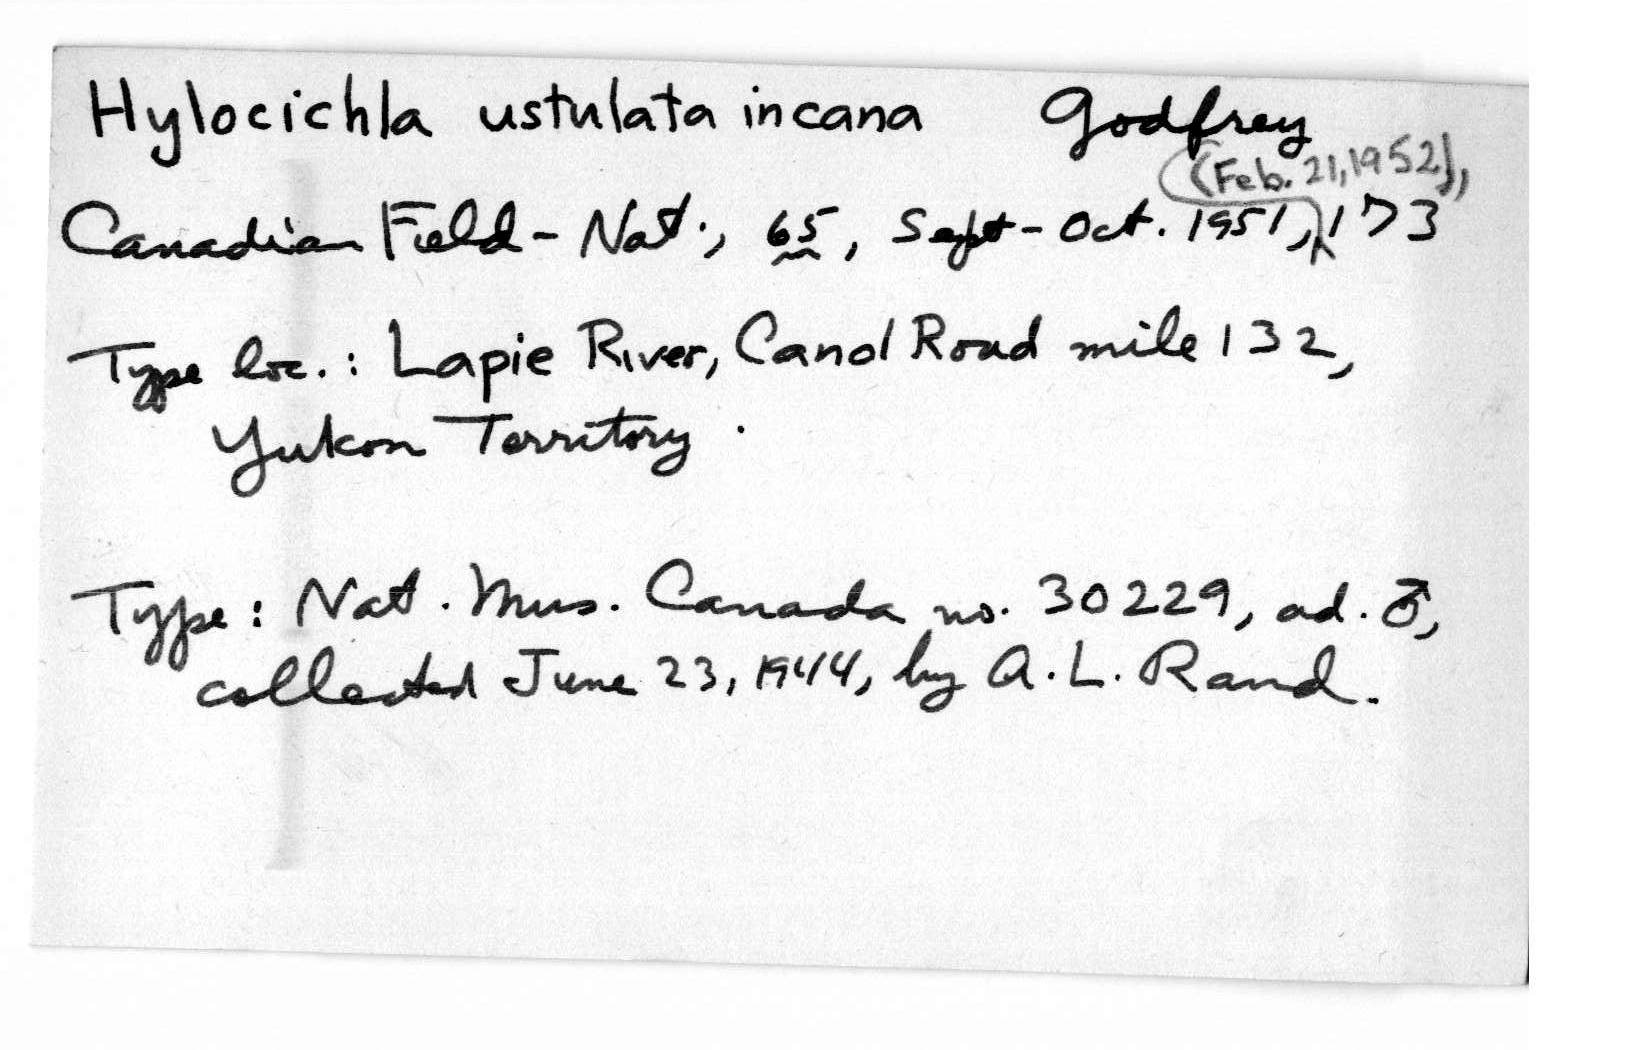 Hylocichla ustulata incana Godfrey
(Feb. 21, 1952),
Canadian Field-Nat., 65, Sept-Oct. 1951, 173
Type loc.: Lapie River, Canol Road mile 132,
Yukon Territory.
Type: Nat. Mus. Canada no. 30229, ad. ♂,
collected June 23, 1944, by A. L. Rand.